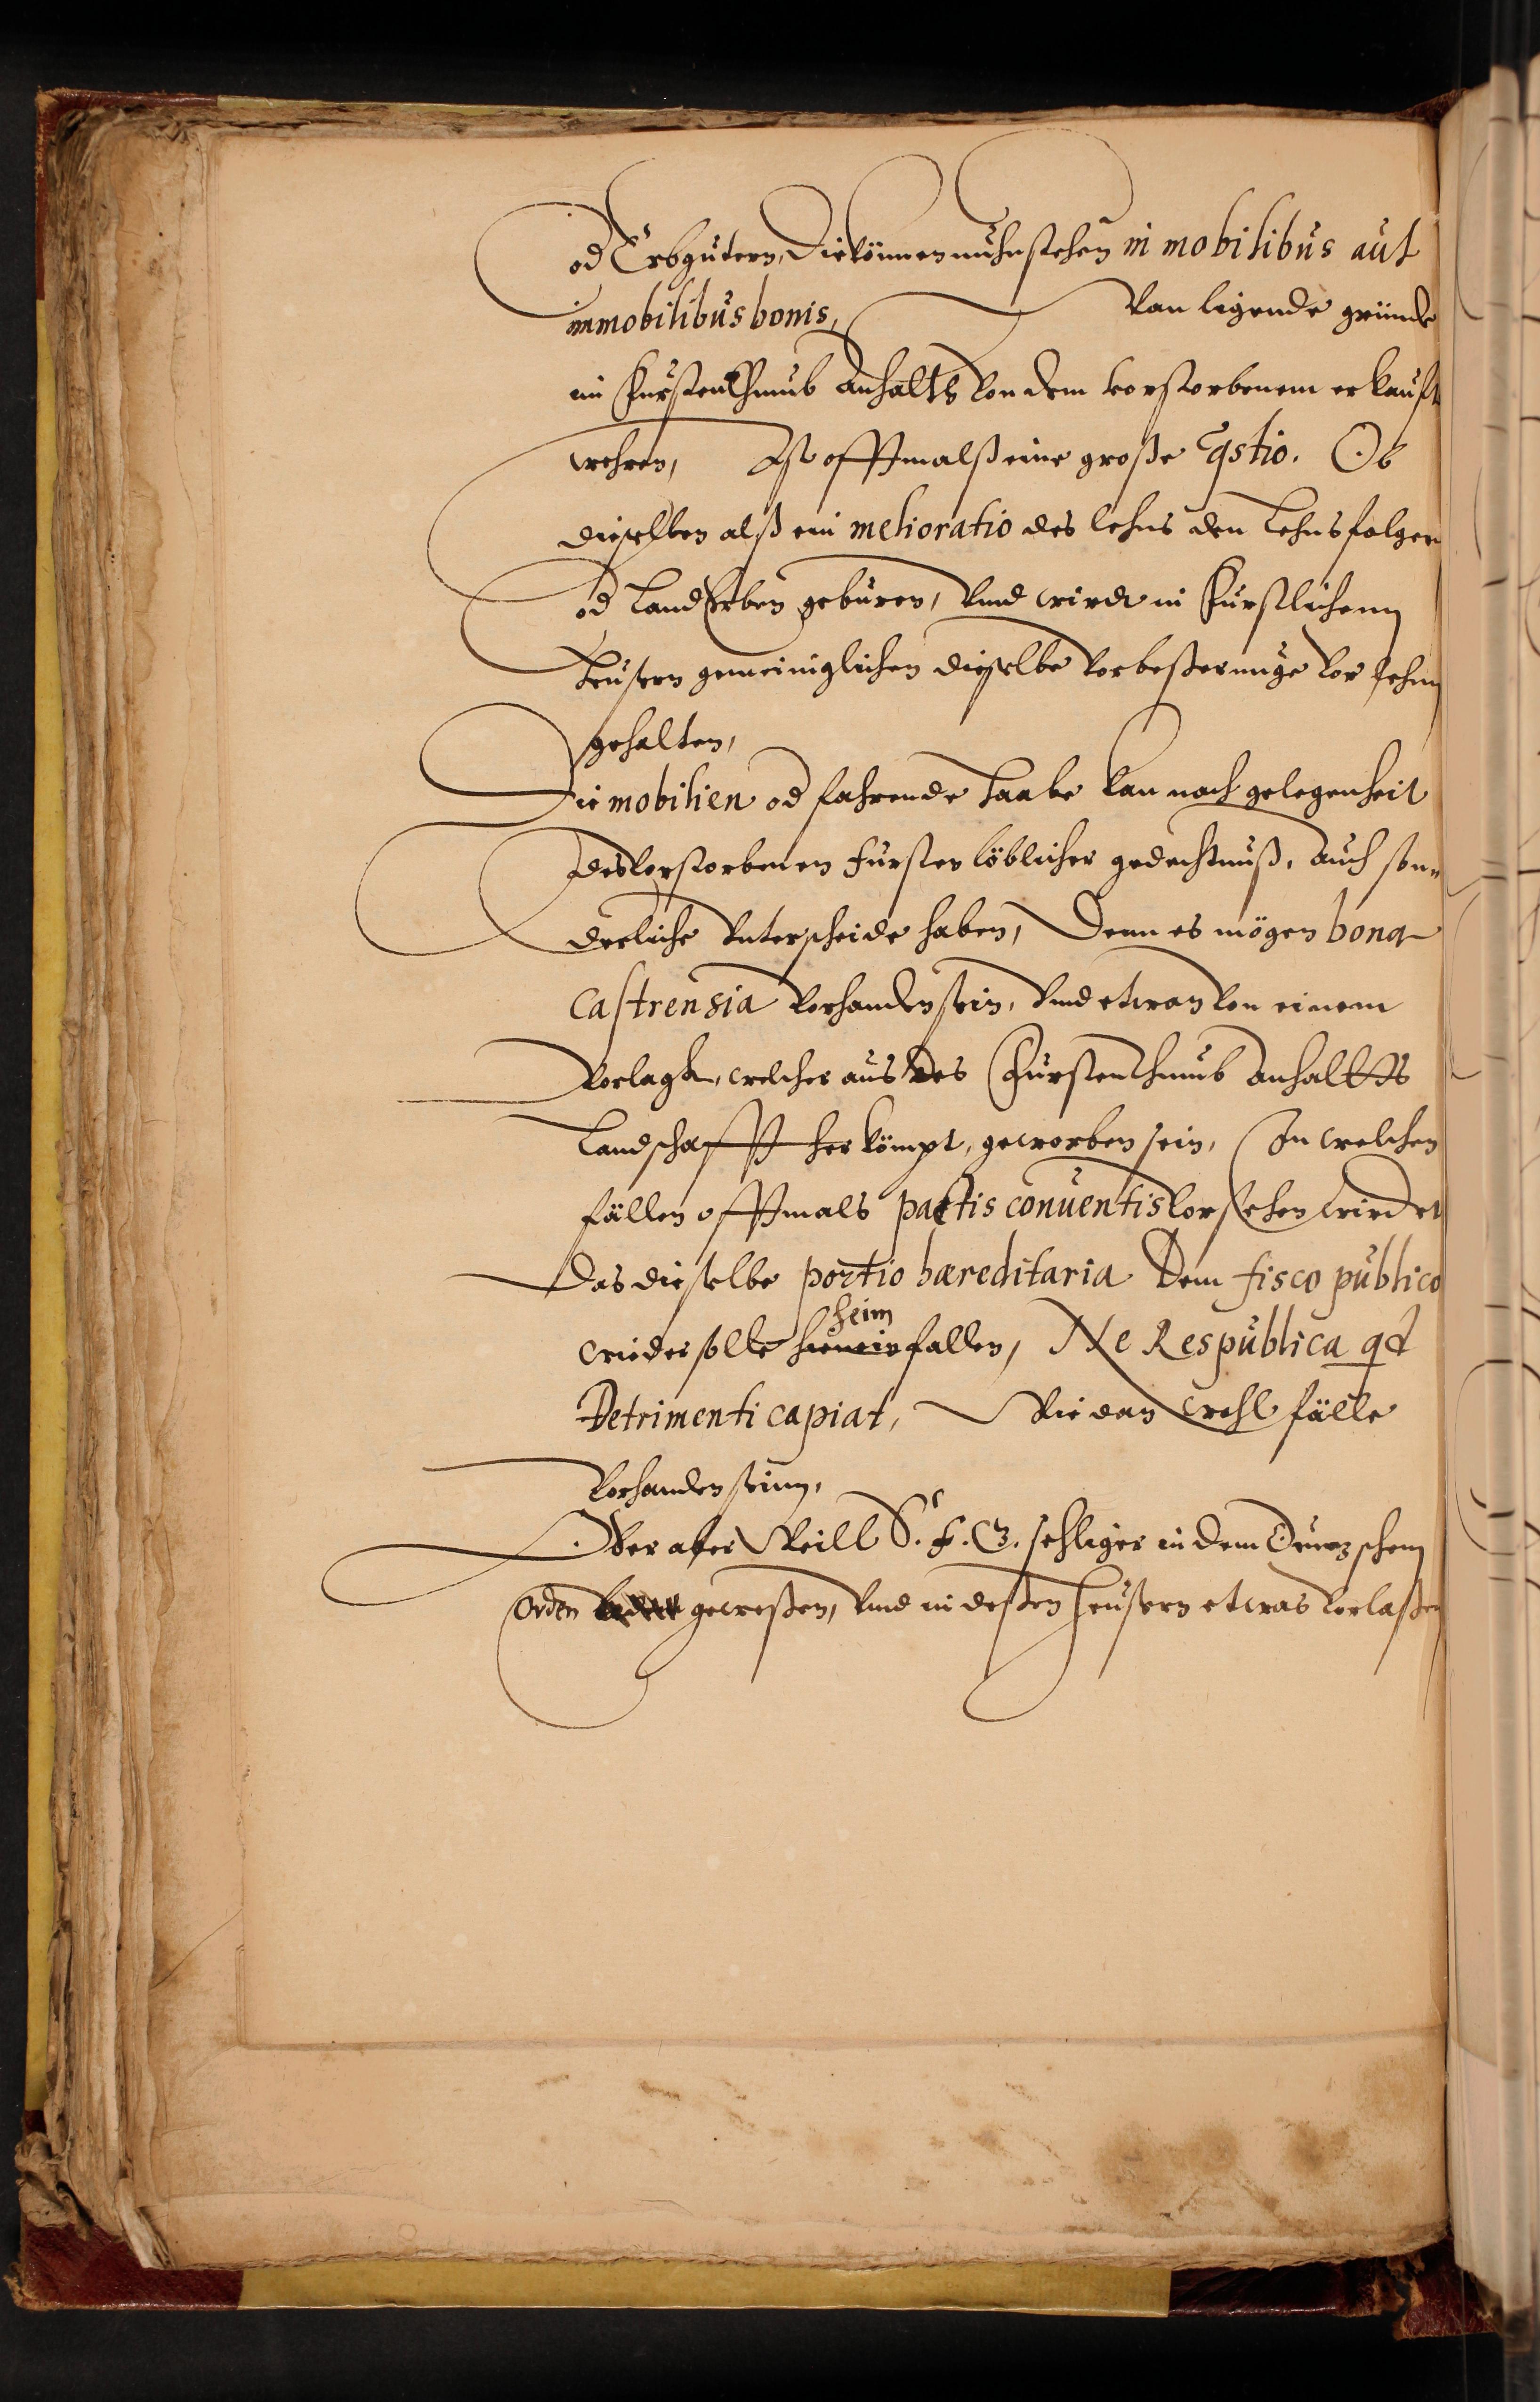 od Erbgütern, Die können nuhn stehen in mobilibus aut
immobilibus bonis, Wan ligende gründe
im Fürstenthumb Anhalts von dem vorstorbenem erkauft
wehren, Ist offtmalß eine große Qstio. Ob
dieselben alß ein melioratio des lehns den Lehnsfolgern
od Landserben gebüren, Vnd wirdt in Fürstlichenn
heusern gemeiniglichen dieselbe vorbeßerunge vor lehn
gehalten,
Die mobilien od fahrende haabe kan nach gelegenheit
des Vorstorbenen Fürsten löblicher gedechtnuß, auch son-
derliche Vnterscheide haben, Denn es mögen bona
Castrensia vorhanden sein, Vnd etwan von einem
Vorlagk, welcher aus des Fürstenthumb Anhaltts
Landschafft her kömpt, geworben sein, In welchen
fällen offtmals pactis conuentis vorsehen wirdet
Das dieselbe portio hæreditaria Dem fisco publico
heim
wieder solle hienein fallen, Ne Respublica qd
Detrimenti capiat, Wie dan wohl fälle
vorhanden seinn,
Vber aber Weill S. F. G. sehliger in dem Deutzschem
Orden gewesen, Vnd in deßen heusern etwas vorlaßen